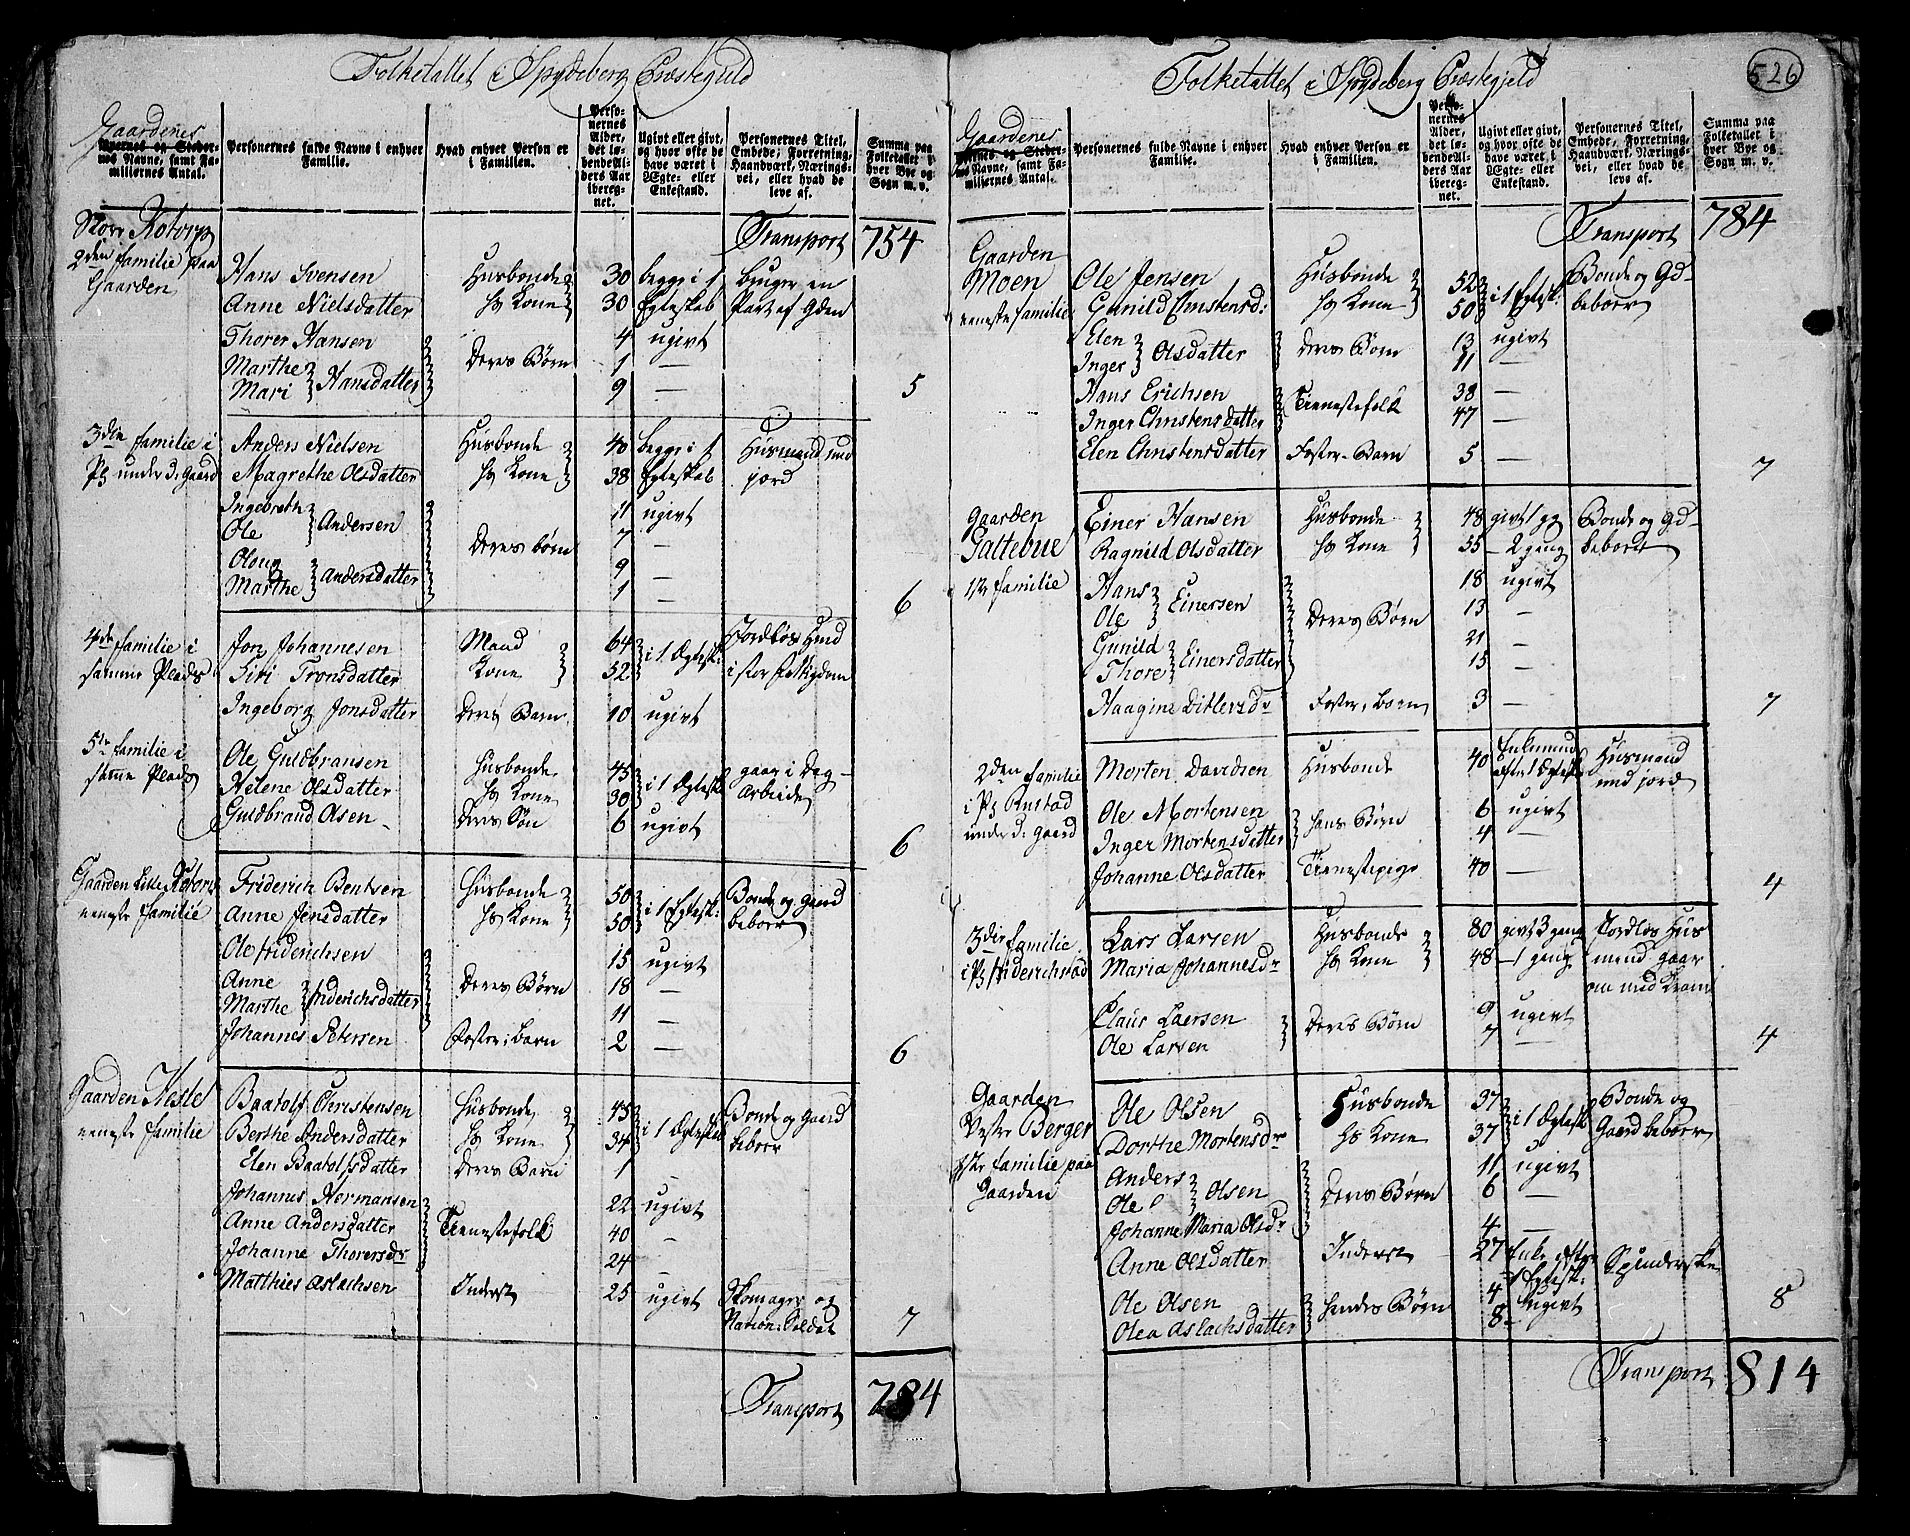 Folketallet i Spydeberg Præstegield
Gaardenes
Byernes og Steder-
nes Navne, samt Fa-
miliernes Antal.
Personernes fulde Navne i enhver
Familie.
Hvad enhver Person er
i Familien.
Perso-
nernes
Alder,
det lø-
bende Al-
ders Aar
iberegnet.
Ugivt eller givt,
og hvor ofte de
have været i
Ægte- eller
Enkestand.
Personernes Titel,
Embede, Forretning,
Haandværk, Nærings-
vei, eller hvad de
leve af.
Summa paa
Folketallet i
hver Bye og
Sogn m. v.
Transport 754
Norr Kotorp
2den familie paa
Gaarden
Hans Svensen Husbonde 30 begge i 1 bruger en
Anne Nielsdatter hs Kone 30 Egteskab Part af Gden
Thorer Hansen 4 ugivt
Marthe Deres Børn 1 —
Mari Hansdatter 9 — 5
3die familie i
Pl under d: Gaard
Anders Nielsen Husbonde 40 begge i 1 Husmand med
Magrethe Olsdatter hs Kone 38 Egteskab jord
Ingebreth 11 ugivt
Ole Andersen 7 —
Deres børn
Oloug 9
Marthe Andersdatter 1 — 6
4de familie i
samme Plads
Jon Johannesen Mand 64 i 1 Ægtesk:
Siri Tronsdatter Kone 52
Ingeborg Jonsdatter Deres Barn 10 ugivt
5te familie i
samme Plads
Ole Guldbransen Husbonde 45 i 1 Ægtesk gaar i Dag-
Helene Olsdatter hs Kone 30 Arbeide
Guldbrand Olsen Deres Søn 6 ugivt 6
Gaarden Lille Kotorp
eeneste familie
Friderich Bentsen Husbonde 50 i 1 Egtesk: Bonde og Gaard
Anne Jensdatter hs Kone 50 beboer
Ole Friderichsen 15 ugivt
Anne Deres Børn 18 —
Marthe Friderichsdatter 11 —
Johannes Petersen Foster: barn 2 — 6
Gaarden Hesle
eeneste familie
Baatolf Christensen Husbonde 45 i 1 Ægteskab Bonde og Gaard
Berthe Andersdatter hs Kone 34 beboer
Elen Baatolfsdatter Deres Barn 1 —
Johannes Hermansen 22 ugivt
Anne Andersdatter Tienestefolk 40 —
Johanne Thorersdr 24
Matthies Aslachsen Inderst 25 ugivt Skomager og
Nation: Soldat 7
Transport 784
526
Folketallet i Spydeberg Præstegield
Gaardenes
Byernes og Steder-
nes Navne, samt Fa-
miliernes Antal.
Personernes fulde Navne i enhver
Familie.
Hvad enhver Person er
i Familien.
Perso-
nernes
Alder,
det lø-
bende Al-
ders Aar
iberegnet.
Ugivt eller givt,
og hvor ofte de
have været i
Ægte- eller
Enkestand.
Personernes Titel,
Embede, Forretning,
Haandværk, Nærings-
vei, eller hvad de
leve af.
Summa paa
Folketallet i
hver Bye og
Sogn m. v.
Transport 784
Gaarden
Moen
eeneste familie
Ole Jensen Husbonde 52 i 1 Egtesk: Bonde og Gd-
Gunild Christensd: hs Kone 50 beboer
Elen 13 ugivt
Inger Olsdatter deres Børn 11 —
Hans Erichsen Tienestefolk 38 —
Inger Christensdatter 47 —
Elen Christensdatter Foster-Barn 5 — 7
Gaarden
Galtebue
1te familie
Einer Hansen Husbonde 48 givt 1 gg Bonde og Gd-
Ragnild Olsdatter hs Kone 55 — 2 gang beboer
Hans 18 ugivt
Ole Einersen 13 —
Deres Børn
Gunild 21 —
Thore Einersdatter 15 —
Haagine Ditlevsdr Foster: barn 3 — 7
2den familie
i Pl Rustad
under d: gaard
Morten Davidsen Husbonde 40 Enkemand Husmand
efter 1 Ægtesk med jord
Ole Mortensen 6 ugivt
Inger Mortensdatter hans Børn 4 —
Johanne Olsdatter Tienestepige 40 — 4
3die familie
i Pl friderichstad
Lars Larsen Husbonde 80 givt 3 gang Jordløs Hus
Maria Johannesdr hs Kone 48 — 1 gang mand gaar
om med Kram
Claus Larsen Deres Børn 9 ugivt
Ole Larsen 7 — 4
Gaarden
Vestre Berger
1ste familie paa
Gaarden
Ole Olsen Husbonde 37 i 1 Ægtesk Bonde og
Dorthe Mortensdr hs Kone 37 Gaard beboer
Anders 11 ugivt
Ole Olsen Deres Børn 6 —
Johanne Maria Olsdr 4 —
Anne Olsdatter Inderst 27 Enke efter Spinderske
1 Egtesk:
Ole Olsen hendes Børn 4 ugivt
Olea Aslachsdatter 8 8
Transport 814